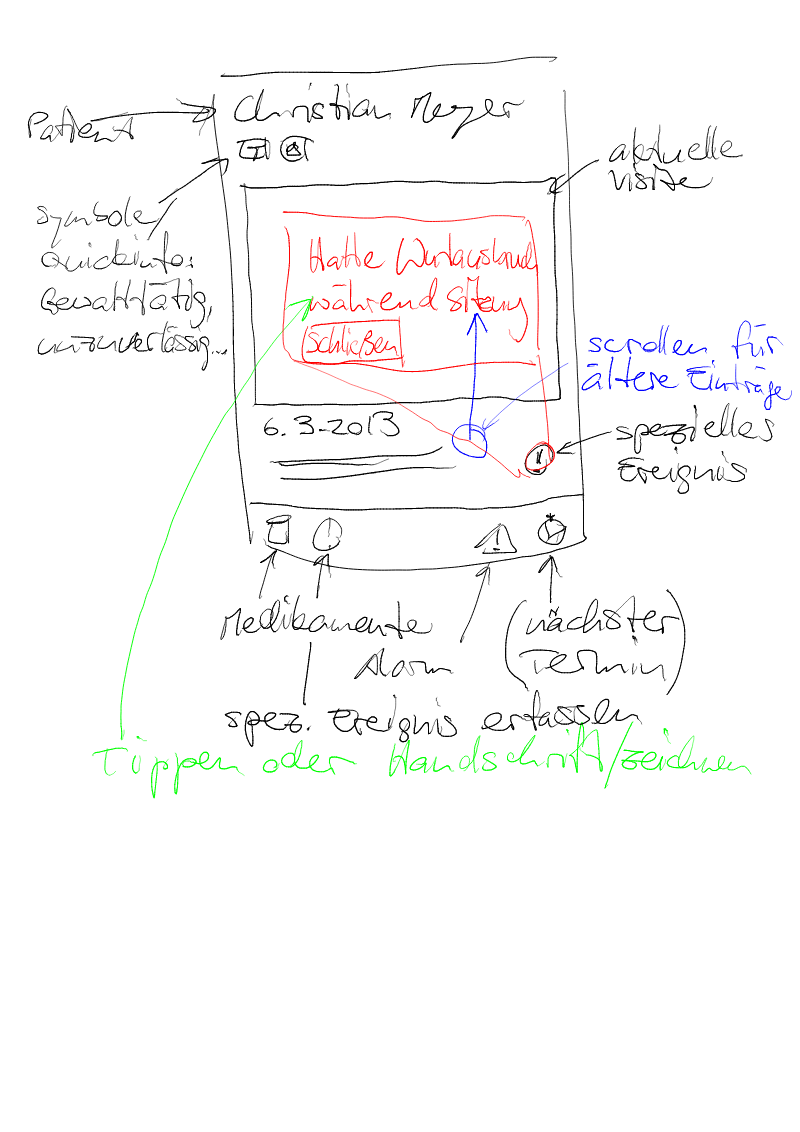 Christian Meyer
Patient
aktuelle
Visite
Symbole/
Quickinfo:
Gewalttätig,
unzuverlässig...
Hatte Wutausbruch
während Sitzung
Schließen
scrollen für
ältere Einträge
6.3.2013
spezielles
Ereignis
Medikamente
(nächster
Termin)
Alarm
spez. Ereignis erfassen
Tippen oder Handschrift/zeichnen